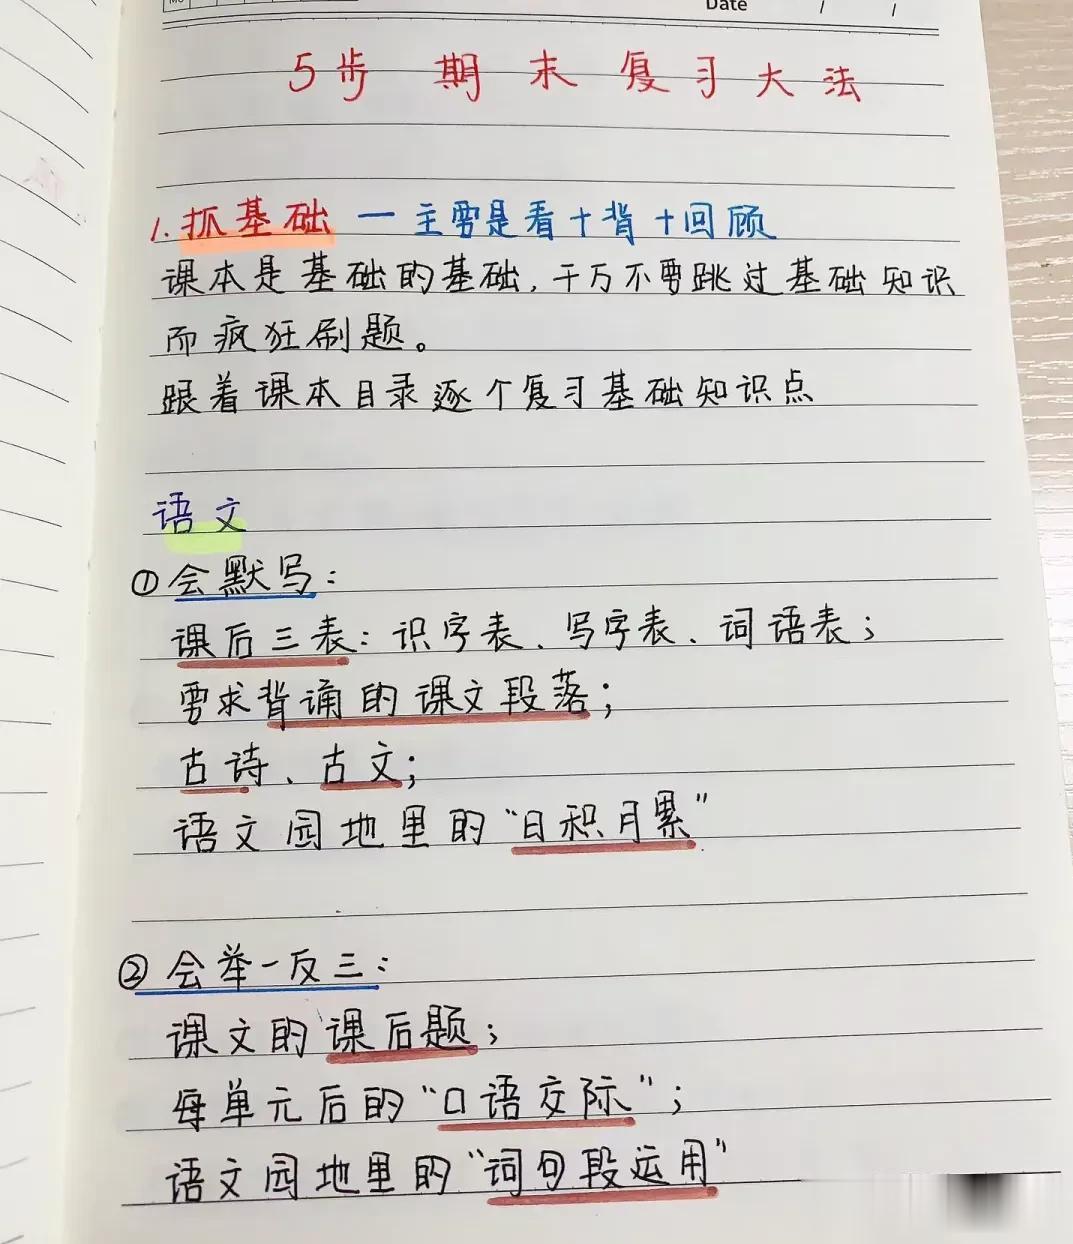 Mo
Date / /
5步 期末复习大法
1.抓基础 — 主要是看+背+回顾
课本是基础的基础,千万不要跳过基础知识
而疯狂刷题。
跟着课本目录逐个复习基础知识点
语文
①会默写:
课后三表:识字表、写字表、词语表;
要求背诵的课文段落;
古诗、古文;
语文园地里的“日积月累”
②会举一反三:
课文的课后题;
每单元后的“口语交际”;
语文园地里的“词句段运用”